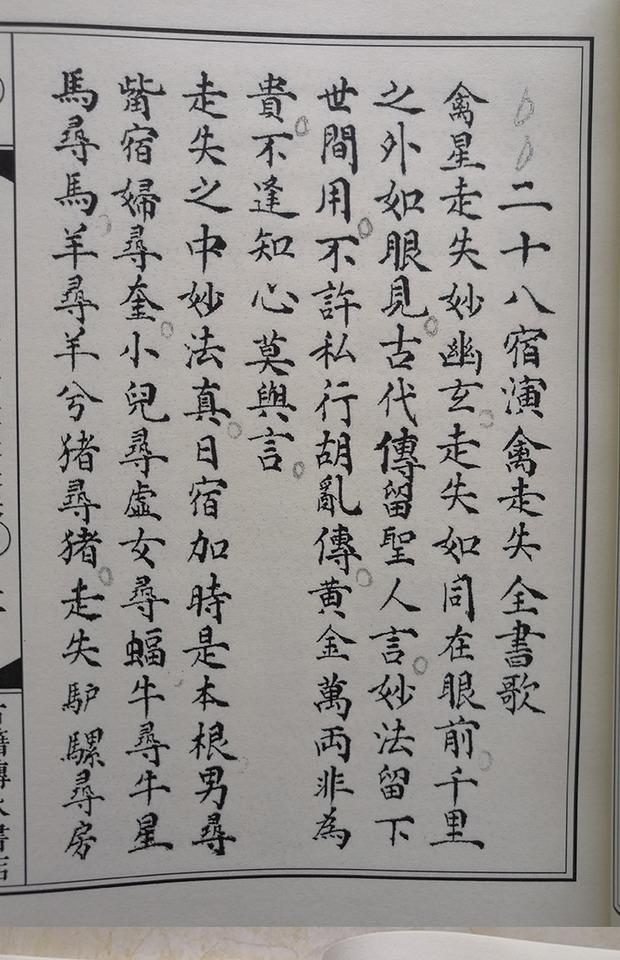 二十八宿演禽走失全書歌
禽星走失妙幽玄走失如同在眼前千里
之外如眼見古代傳留聖人言妙法留下
世間用不許私行胡亂傳黃金萬両非為
貴不逢知心莫與言
走失之中妙法真日宿加時是本根男尋
觜宿婦尋奎小兒尋虛女尋蝠牛尋牛星
馬尋馬羊尋羊兮猪尋猪走失馿騾尋房